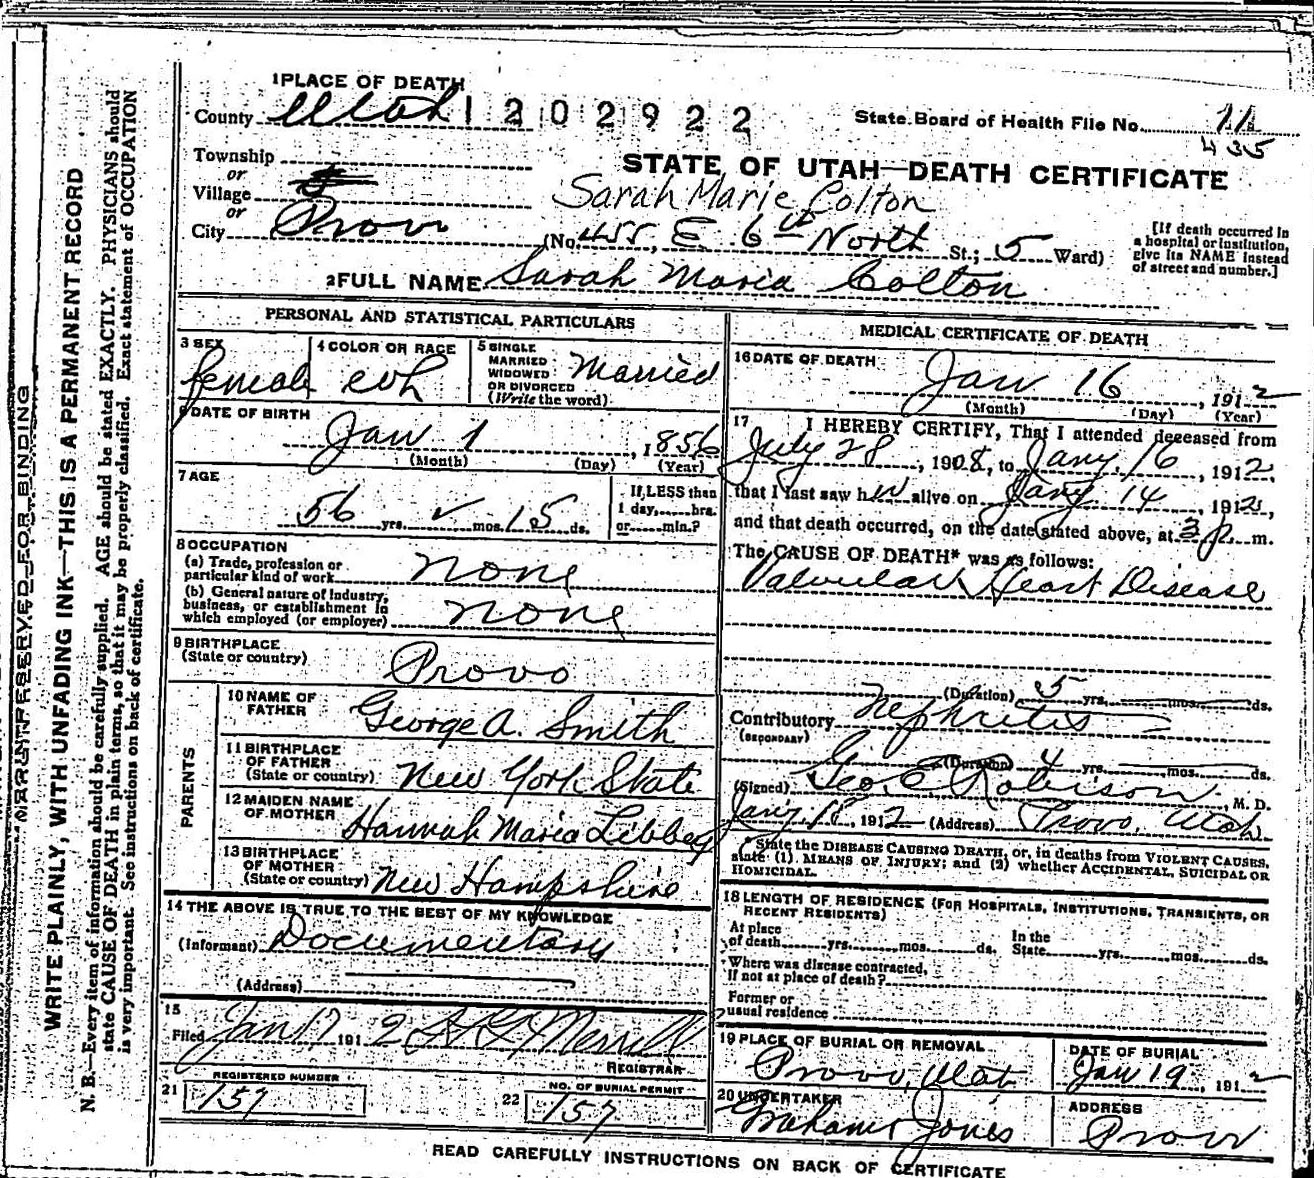 1 PLACE OF DEATH
County Utah 1202922
State Board of Health File No. 11
435
Township
or
Village
or
City Provo
STATE OF UTAH—DEATH CERTIFICATE
Sarah Marie Colton
(No. 455, E 6th North St.; 5 Ward)
[If death occurred in a hospital or institution, give its NAME instead of street and number.]
2 FULL NAME Sarah Maria Colton
PERSONAL AND STATISTICAL PARTICULARS
3 SEX female
4 COLOR OR RACE wh
5 SINGLE MARRIED WIDOWED OR DIVORCED (Write the word) Married
6 DATE OF BIRTH
Jan 1, 1856
(Month) (Day) (Year)
7 AGE
56 yrs. ✓ mos. 15 ds.
If LESS than 1 day,......hrs. or......min.?
8 OCCUPATION
(a) Trade, profession or particular kind of work none
(b) General nature of industry, business, or establishment in which employed (or employer) none
9 BIRTHPLACE
(State or country) Provo
PARENTS
10 NAME OF FATHER George A. Smith
11 BIRTHPLACE OF FATHER (State or country) New York State
12 MAIDEN NAME OF MOTHER Hannah Maria Libbey
13 BIRTHPLACE OF MOTHER (State or country) New Hampshire
14 THE ABOVE IS TRUE TO THE BEST OF MY KNOWLEDGE
(Informant) Documentary
(Address)
15
Filed Jan 17 1912 Merrill
REGISTRAR
21 REGISTERED NUMBER 157
22 NO. OF BURIAL PERMIT 157
MEDICAL CERTIFICATE OF DEATH
16 DATE OF DEATH
Jan 16, 1912
(Month) (Day) (Year)
17 I HEREBY CERTIFY, That I attended deceased from
July 28, 1908, to Jany. 16, 1912,
that I last saw her alive on Jany 14, 1912,
and that death occurred, on the date stated above, at 3 p. m.
The CAUSE OF DEATH* was as follows:
Valvular Heart Disease
(Duration) 5 yrs. mos. ds.
Contributory Nephritis
(SECONDARY)
(Duration) 4 yrs. mos. ds.
(Signed) Geo. E Robison, M. D.
Jany. 18, 1912 (Address) Provo, Utah.
* State the DISEASE CAUSING DEATH, or, in deaths from VIOLENT CAUSES,
state (1) MEANS OF INJURY; and (2) whether ACCIDENTAL, SUICIDAL OR
HOMICIDAL.
18 LENGTH OF RESIDENCE (FOR HOSPITALS, INSTITUTIONS, TRANSIENTS, OR
RECENT RESIDENTS)
At place of death......yrs......mos......ds. In the State......yrs......mos......ds.
Where was disease contracted,
If not at place of death?
Former or
usual residence
19 PLACE OF BURIAL OR REMOVAL
Provo, Utah
DATE OF BURIAL
Jan 19, 1912
20 UNDERTAKER
Jones
ADDRESS
Provo
READ CAREFULLY INSTRUCTIONS ON BACK OF CERTIFICATE
MARGIN RESERVED FOR BINDING
WRITE PLAINLY, WITH UNFADING INK—THIS IS A PERMANENT RECORD
N. B.—Every item of information should be carefully supplied. AGE should be stated EXACTLY. PHYSICIANS should
state CAUSE OF DEATH in plain terms, so that it may be properly classified. Exact statement of OCCUPATION
is very important. See instructions on back of certificate.